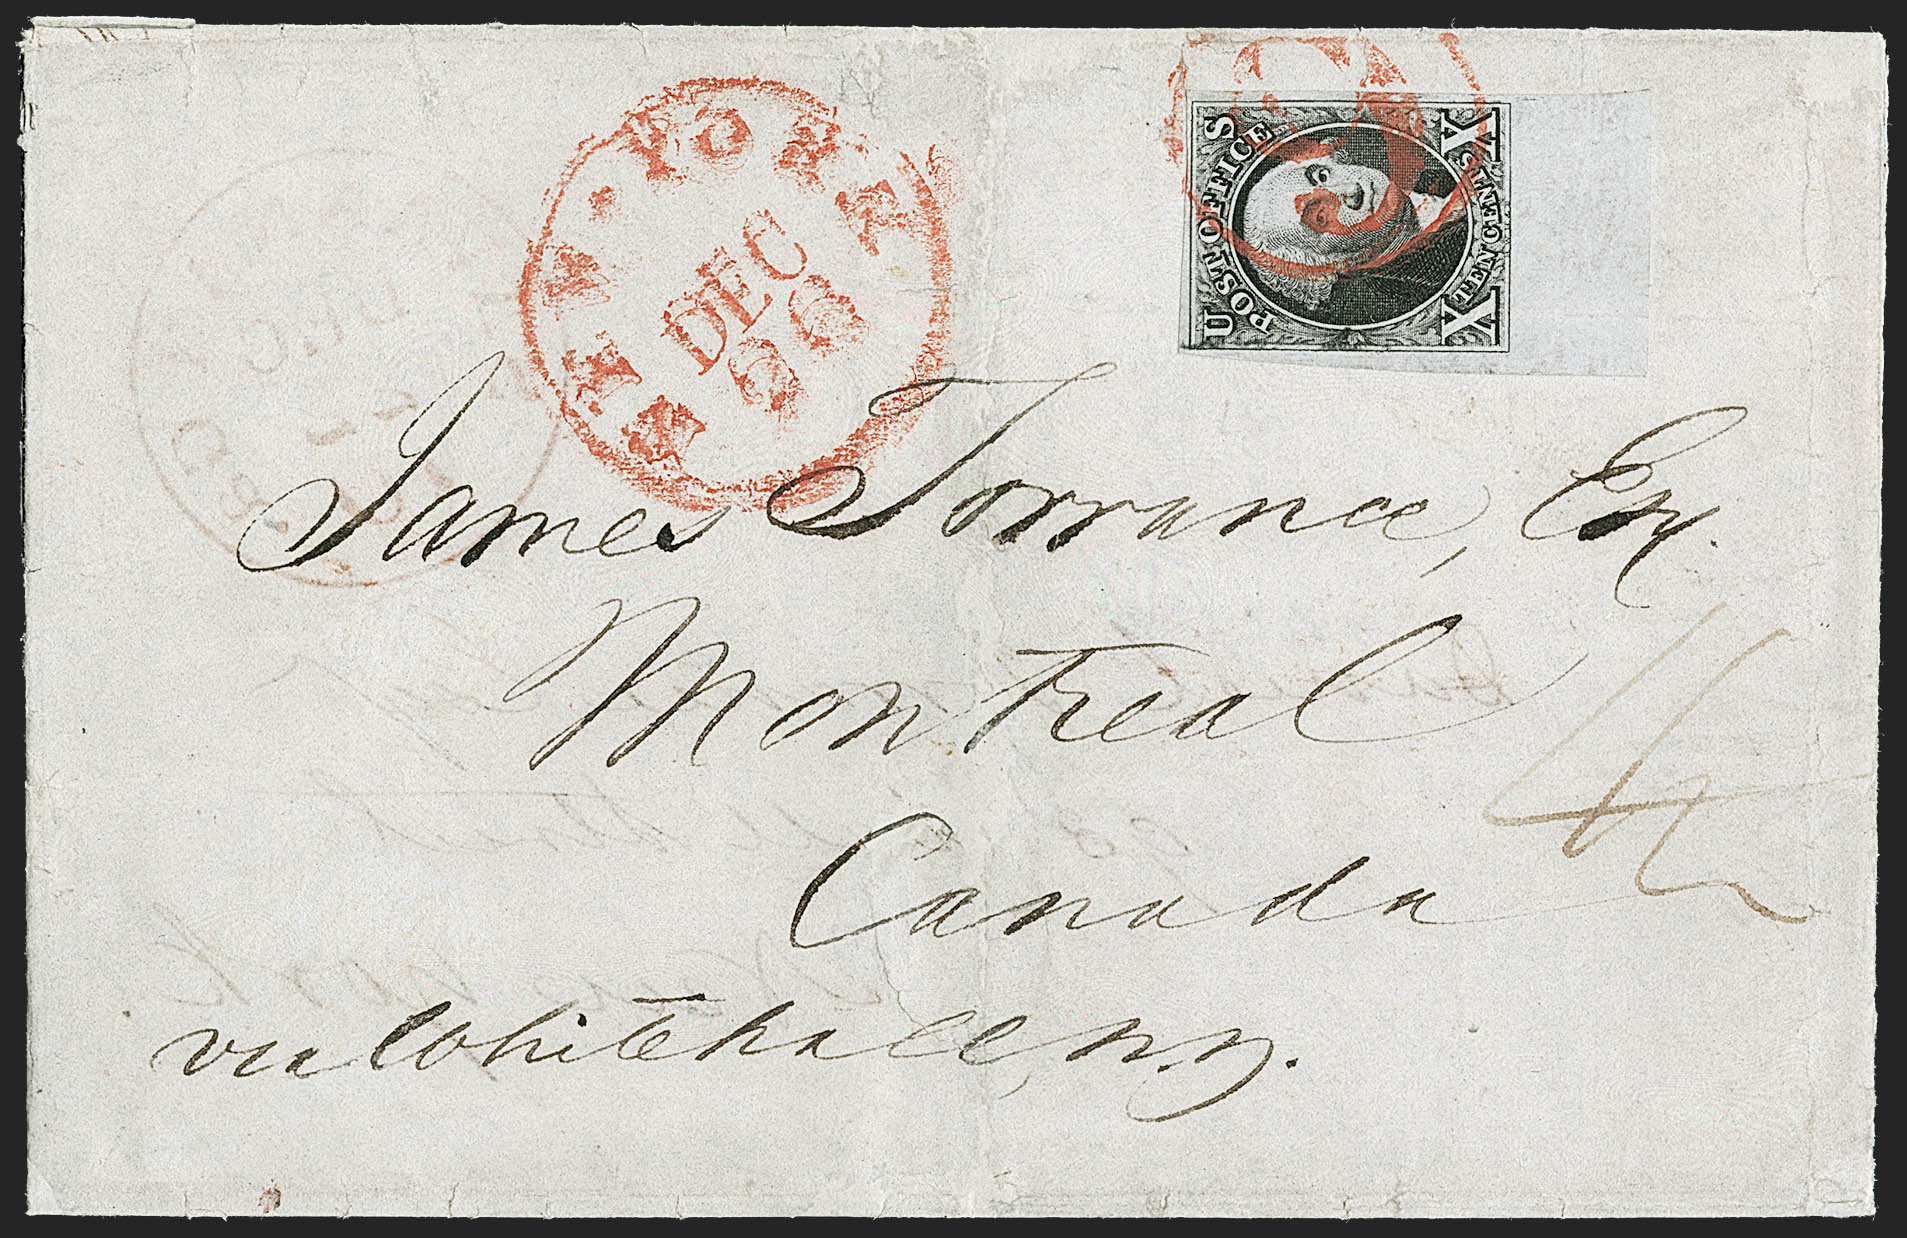 NEW-YORK
DEC
22
U S
POST OFFICE
TEN CENTS
X X
James Torrance, Esq.
Montreal
Canada
via Whitehall, N.Y.